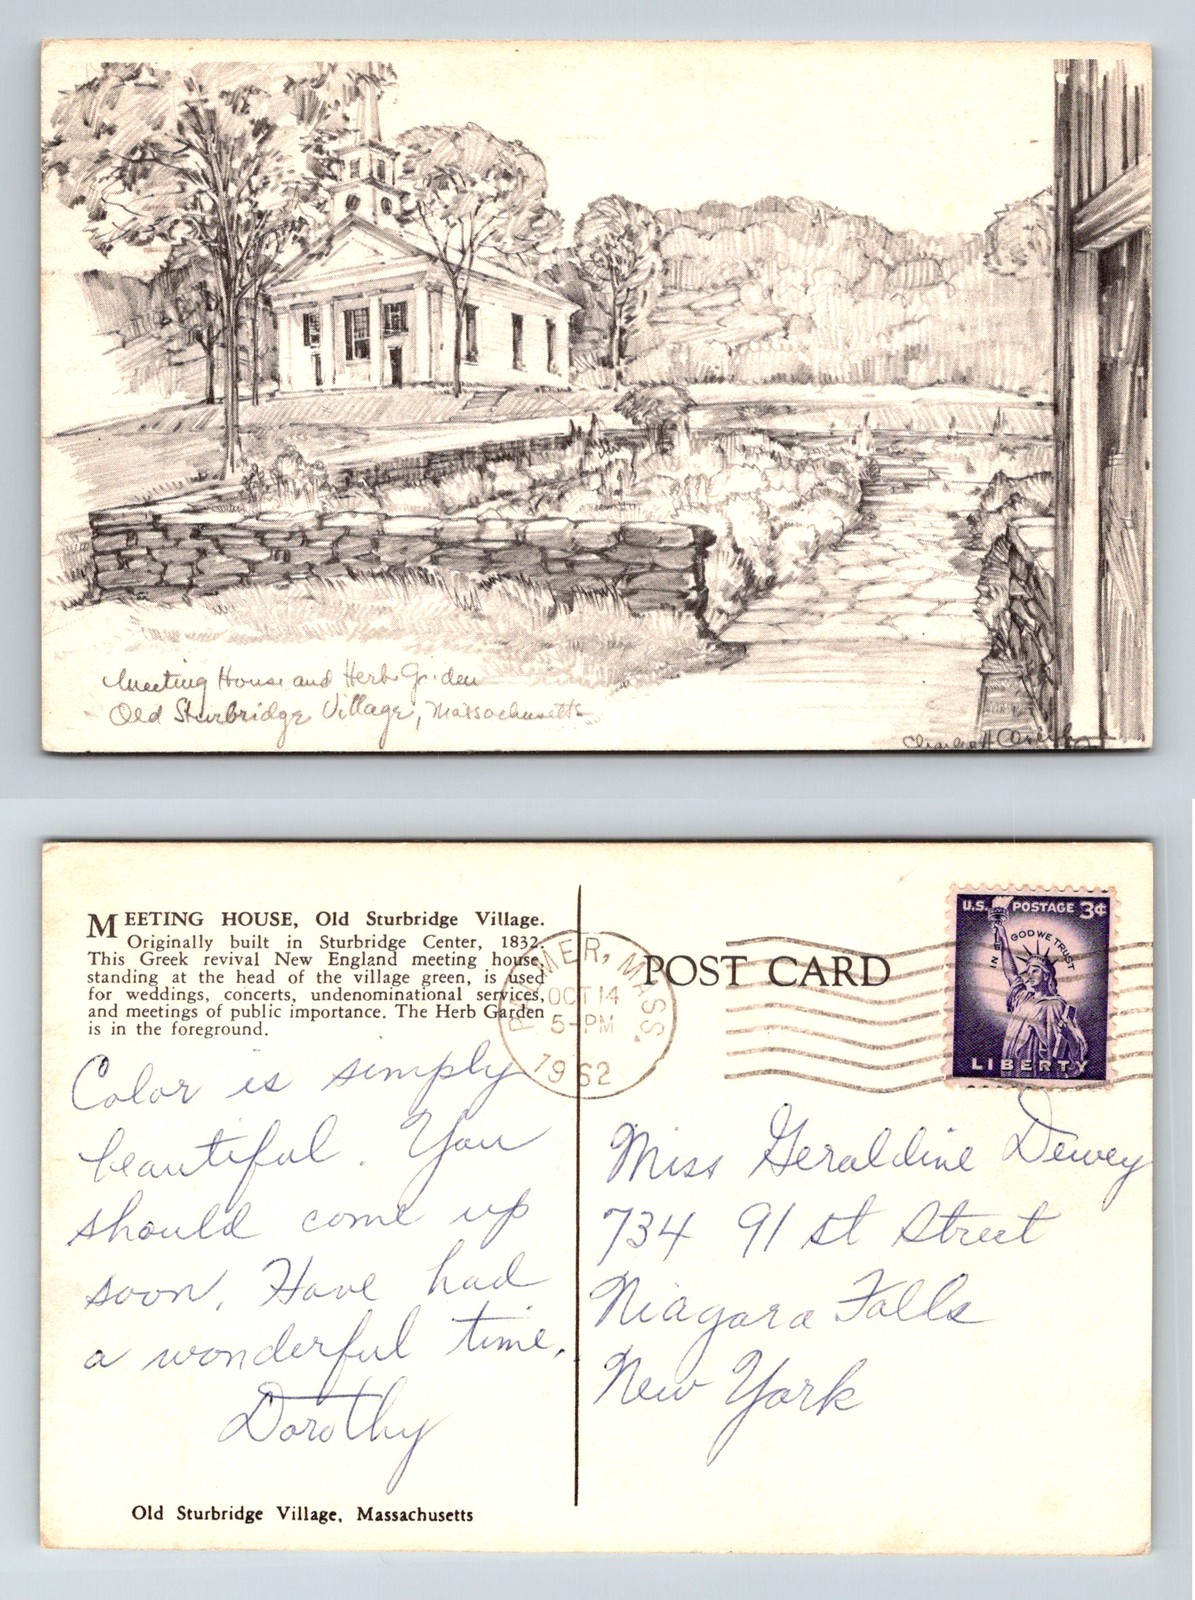 Meeting House and Herb Garden
Old Sturbridge Village, Massachusetts
Charles H.
MEETING HOUSE, Old Sturbridge Village.
Originally built in Sturbridge Center, 1832.
This Greek revival New England meeting house,
standing at the head of the village green, is used
for weddings, concerts, undenominational services,
and meetings of public importance. The Herb Garden
is in the foreground.
Color is simply
beautiful. You
should come up
soon. Have had
a wonderful time.
Dorothy
Old Sturbridge Village, Massachusetts
PALMER, MASS.
OCT 14
5-PM
1962
POST CARD
U.S. POSTAGE 3¢
IN GOD WE TRUST
LIBERTY
Miss Geraldine Dewey
734 91 st Street
Niagara Falls
New York